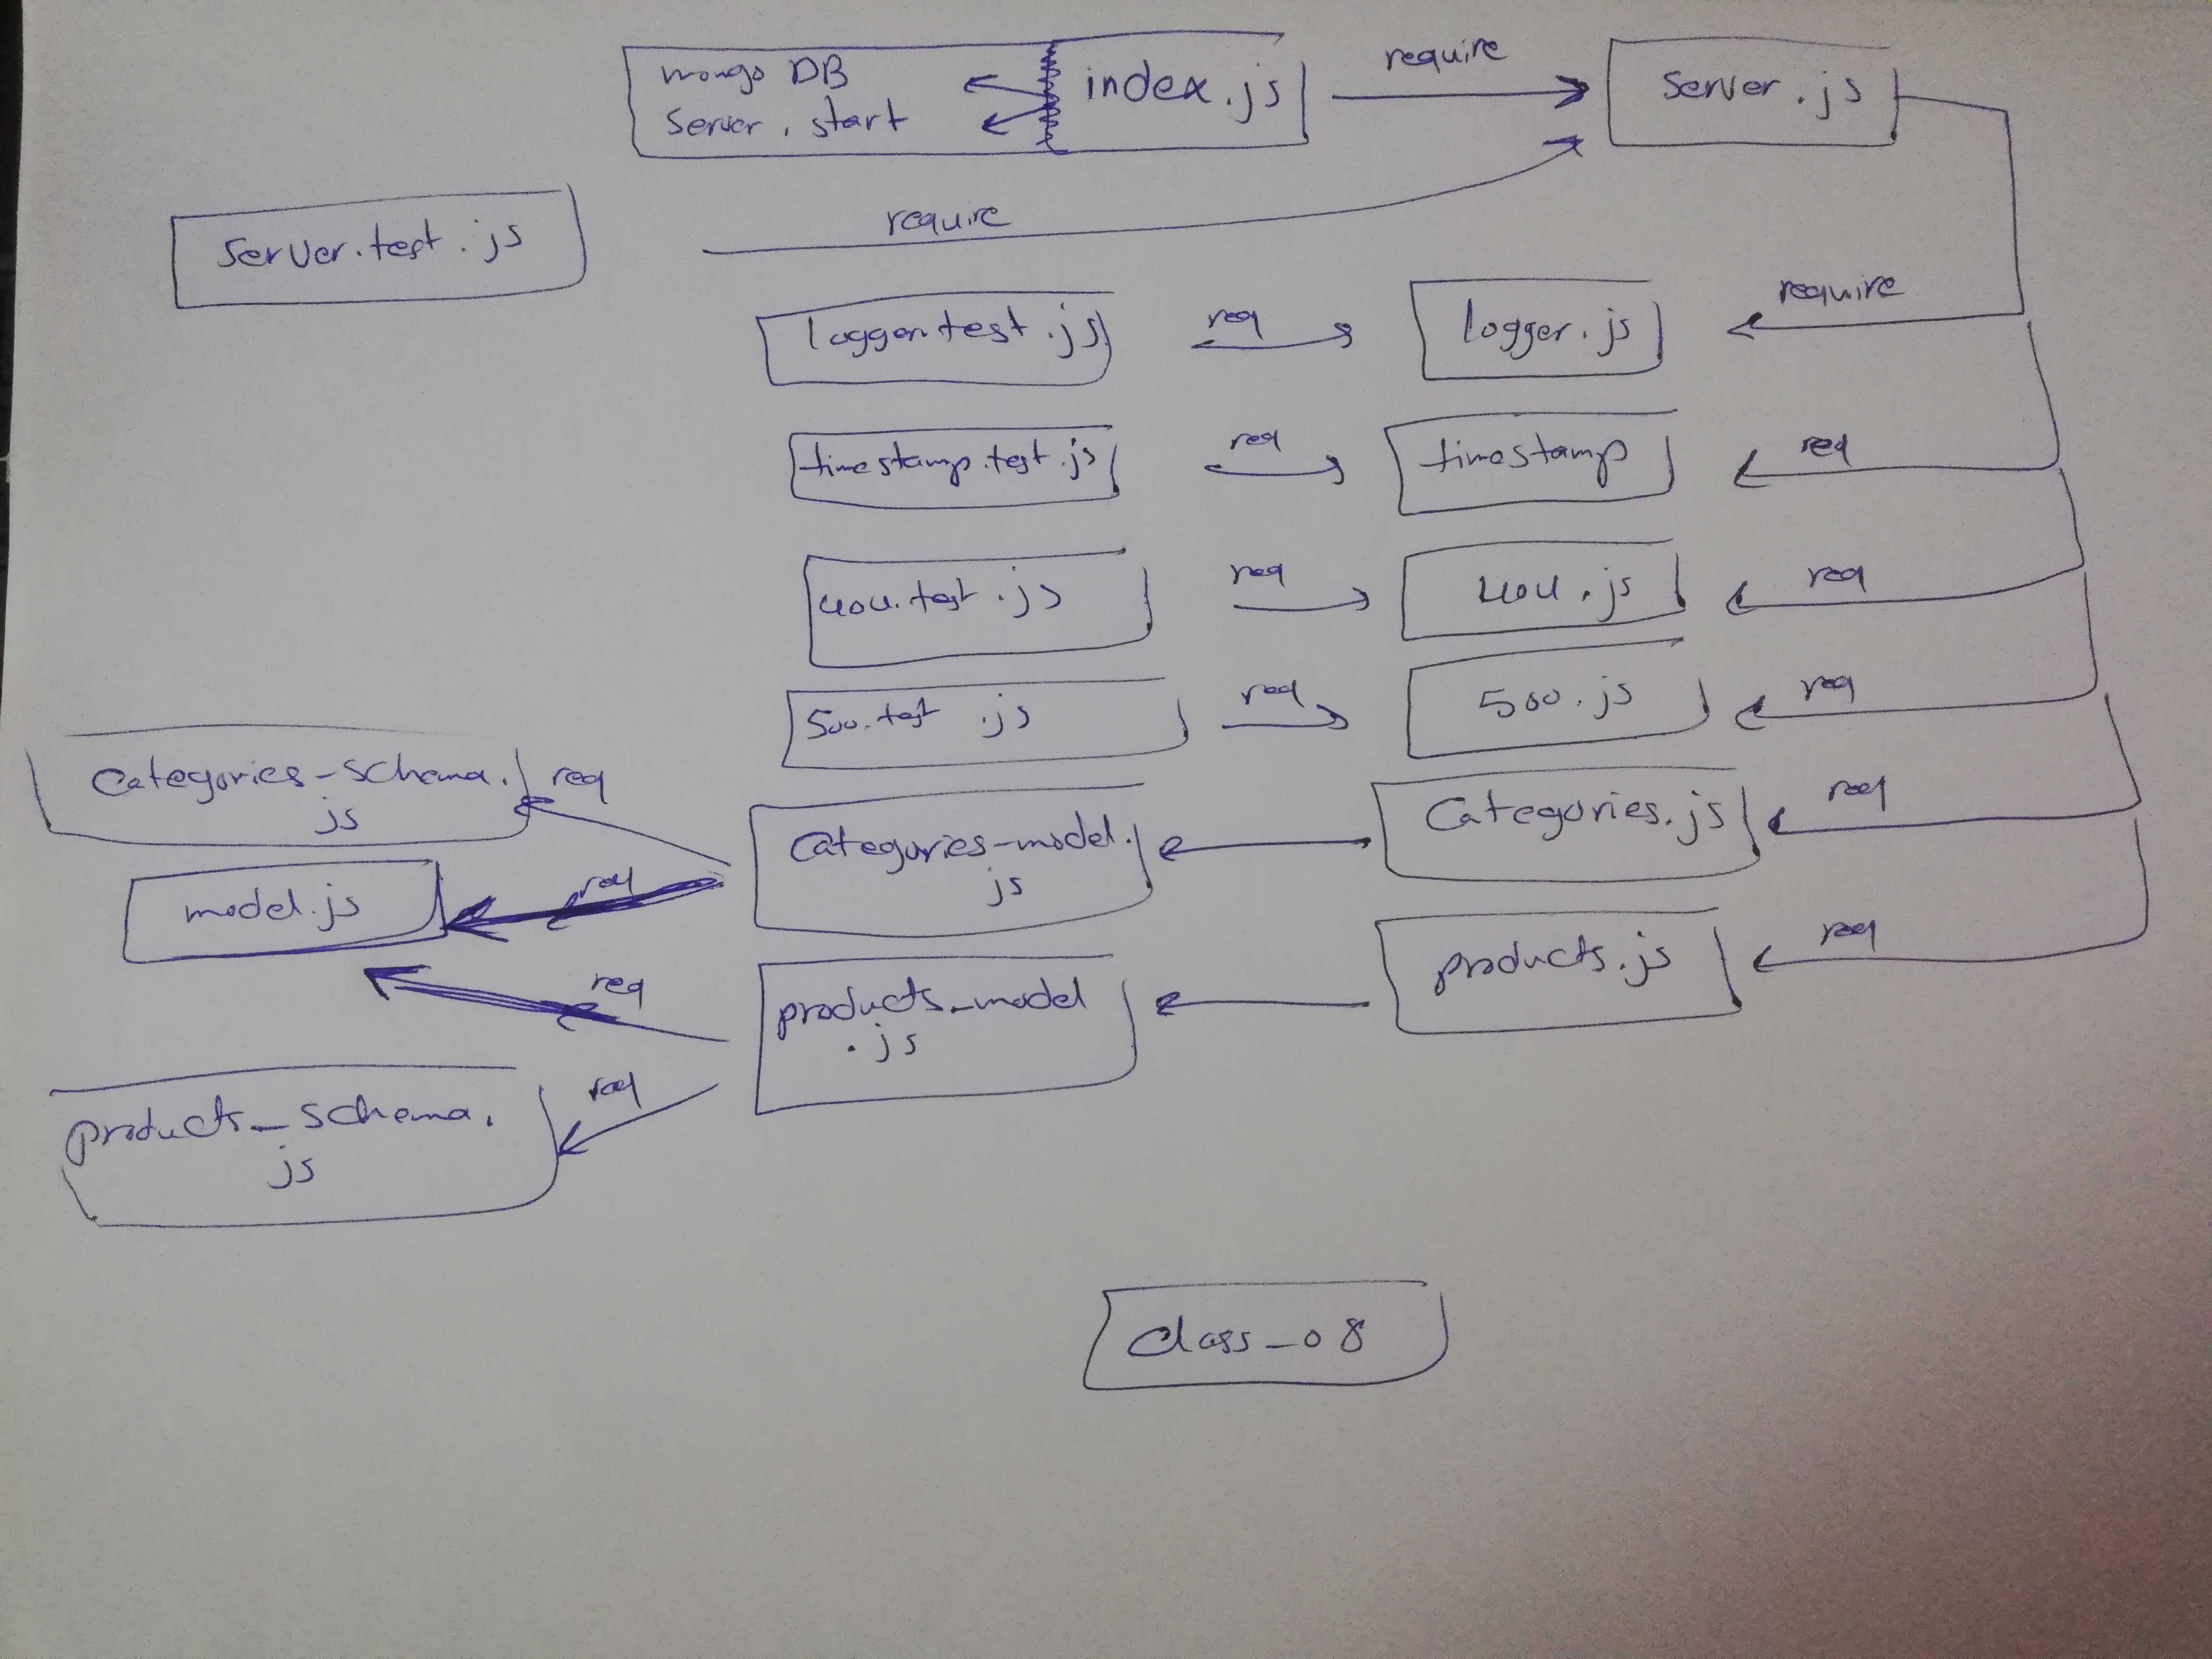 mongo DB
Server . start
index.js
require
Server . js
Server.test.js
require
logger.test.js
req
logger.js
require
timestamp.test.js
req
timestamp
req
404.test.js
req
404.js
req
500.test .js
req
500.js
req
Categories-schema.
js
req
Categories-model.
js
Categories.js
req
model.js
req
req
products_model
.js
products.js
req
products_schema.
js
req
Class_08